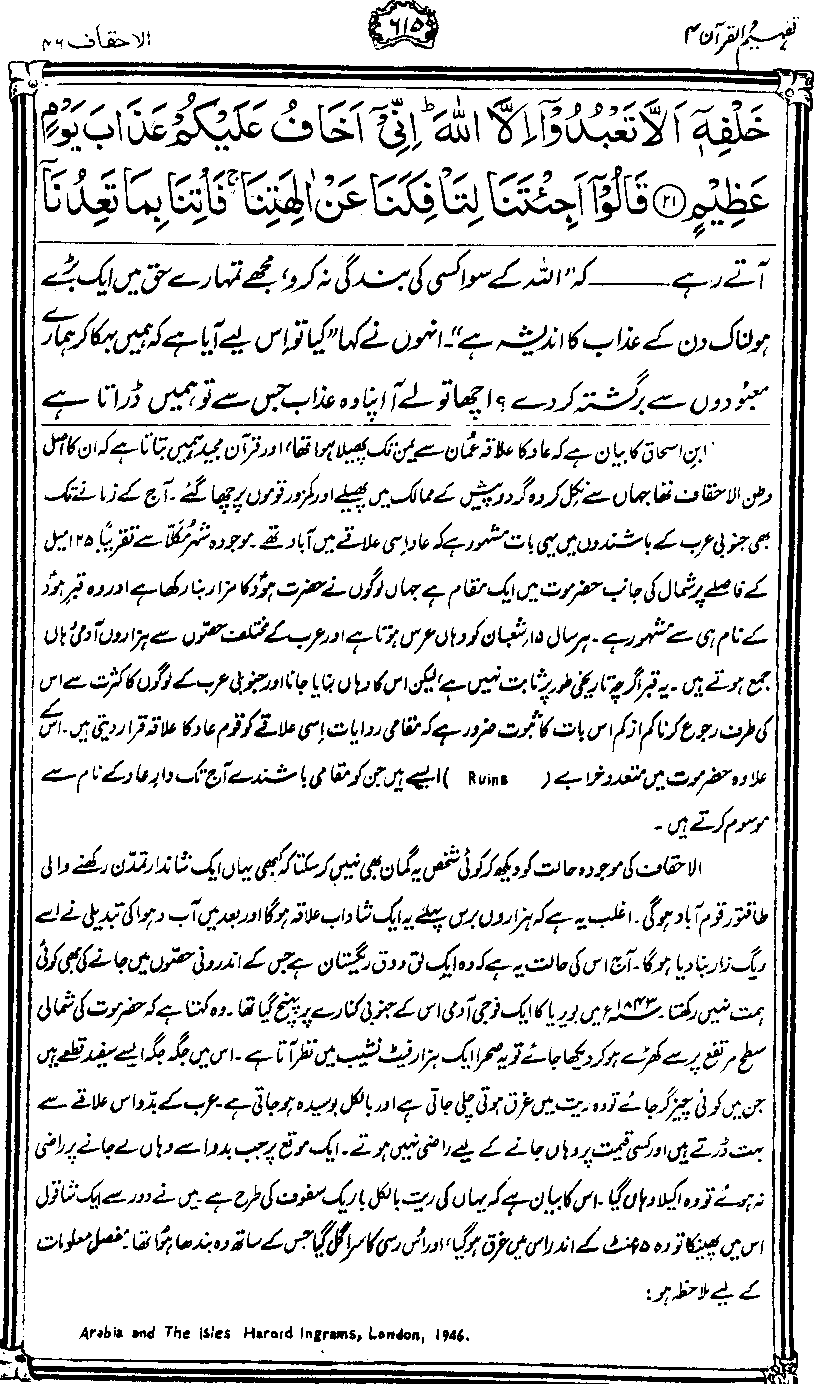 تفہیم القرآن ۴
۶۱۵
الاحقاف ۴۶
خَلْفِهٖۤ اَلَّا تَعْبُدُوْۤا اِلَّا اللّٰهَ ؕ اِنِّیْۤ اَخَافُ عَلَیْكُمْ عَذَابَ یَوْمٍ
عَظِیْمٍ ﴿۲۱﴾ قَالُوْۤا اَجِئْتَنَا لِتَاْفِكَنَا عَنْ اٰلِهَتِنَا ۚ فَاْتِنَا بِمَا تَعِدُنَاۤ
آتے رہے ——— کہ ”اللہ کے سوا کسی کی بندگی نہ کرو، مجھے تمہارے حق میں ایک بڑے
ہولناک دن کے عذاب کا اندیشہ ہے“۔ انہوں نے کہا ”کیا تو اِس لیے آیا ہے کہ ہمیں بہکا کر ہمارے
معبودوں سے برگشتہ کر دے؟ اچھا تو لے آ اپنا وہ عذاب جس سے تو ہمیں ڈراتا ہے
ابن اسحاق کا بیان ہے کہ عاد کا علاقہ عُمان سے یمن تک پھیلا ہوا تھا، اور قرآن مجید ہمیں بتاتا ہے کہ ان کا اصل
وطن الاحقاف تھا جہاں سے نکل کر وہ گرد و پیش کے ممالک میں پھیلے اور کمزور قوموں پر چھا گئے۔ آج کے زمانے تک
بھی جنوبی عرب کے باشندوں میں یہی بات مشہور ہے کہ عاد اسی علاقے میں آباد تھے۔ موجودہ شہر مُکلّا سے تقریباً ۱۲۵ میل
کے فاصلے پر شمال کی جانب حضرموت میں ایک مقام ہے جہاں لوگوں نے حضرت ہودؑ کا مزار بنا رکھا ہے اور وہ قبر ہودؑ
کے نام ہی سے مشہور ہے۔ ہر سال ۱۵ شعبان کو وہاں عرس ہوتا ہے اور عرب کے مختلف حصّوں سے ہزاروں آدمی وہاں
جمع ہوتے ہیں۔ یہ قبر اگرچہ تاریخی طور پر ثابت نہیں ہے، لیکن اس کا وہاں بنایا جانا اور جنوبی عرب کے لوگوں کا کثرت سے اس
کی طرف رجوع کرنا کم از کم اس بات کا ثبوت ضرور ہے کہ مقامی روایات اِسی علاقے کو قوم عاد کا علاقہ قرار دیتی ہیں۔ اس کے
علاوہ حضرموت میں متعدد خرابے (Ruins) ایسے ہیں جن کو مقامی باشندے آج تک دارِ عاد کے نام سے
موسوم کرتے ہیں۔
الاحقاف کی موجودہ حالت کو دیکھ کر کوئی شخص یہ گمان بھی نہیں کر سکتا کہ کبھی یہاں ایک شاندار تمدّن رکھنے والی
طاقتور قوم آباد ہو گی۔ اغلب یہ ہے کہ ہزاروں برس پہلے یہ ایک شاداب علاقہ ہو گا اور بعد میں آب و ہوا کی تبدیلی نے اسے
ریگ زار بنا دیا ہو گا۔ آج اس کی حالت یہ ہے کہ وہ ایک لق و دق ریگستان ہے جس کے اندرونی حصّوں میں جانے کی بھی کوئی
ہمت نہیں رکھتا۔ ۱۸۴۳ء میں بویریا کا ایک فوجی آدمی اس کے جنوبی کنارے پر پہنچ گیا تھا۔ وہ کہتا ہے کہ حضرموت کی شمالی
سطح مرتفع پر سے کھڑے ہو کر دیکھا جائے تو یہ صحرا ایک ہزار فیٹ نشیب میں نظر آتا ہے۔ اس میں جگہ جگہ ایسے سفید قطعے ہیں
جن میں کوئی چیز گر جائے تو وہ ریت میں غرق ہوتی چلی جاتی ہے اور بالکل بوسیدہ ہو جاتی ہے۔ عرب کے بدّو اس علاقے سے
بہت ڈرتے ہیں اور کسی قیمت پر وہاں جانے کے لیے راضی نہیں ہوتے۔ ایک موقع پر جب بدو اسے وہاں لے جانے پر راضی
نہ ہوئے تو وہ اکیلا وہاں گیا۔ اس کا بیان ہے کہ یہاں کی ریت بالکل باریک سفوف کی طرح ہے۔ میں نے دور سے ایک شاقول
اس میں پھینکا تو وہ ۵ منٹ کے اندر اس میں غرق ہو گیا، اور اُس رسی کا سرا گل گیا جس کے ساتھ وہ بندھا ہوا تھا۔ مفصل معلومات
کے لیے ملاحظہ ہو:
Arabia and The Isles Harord Ingrams, London, 1946.